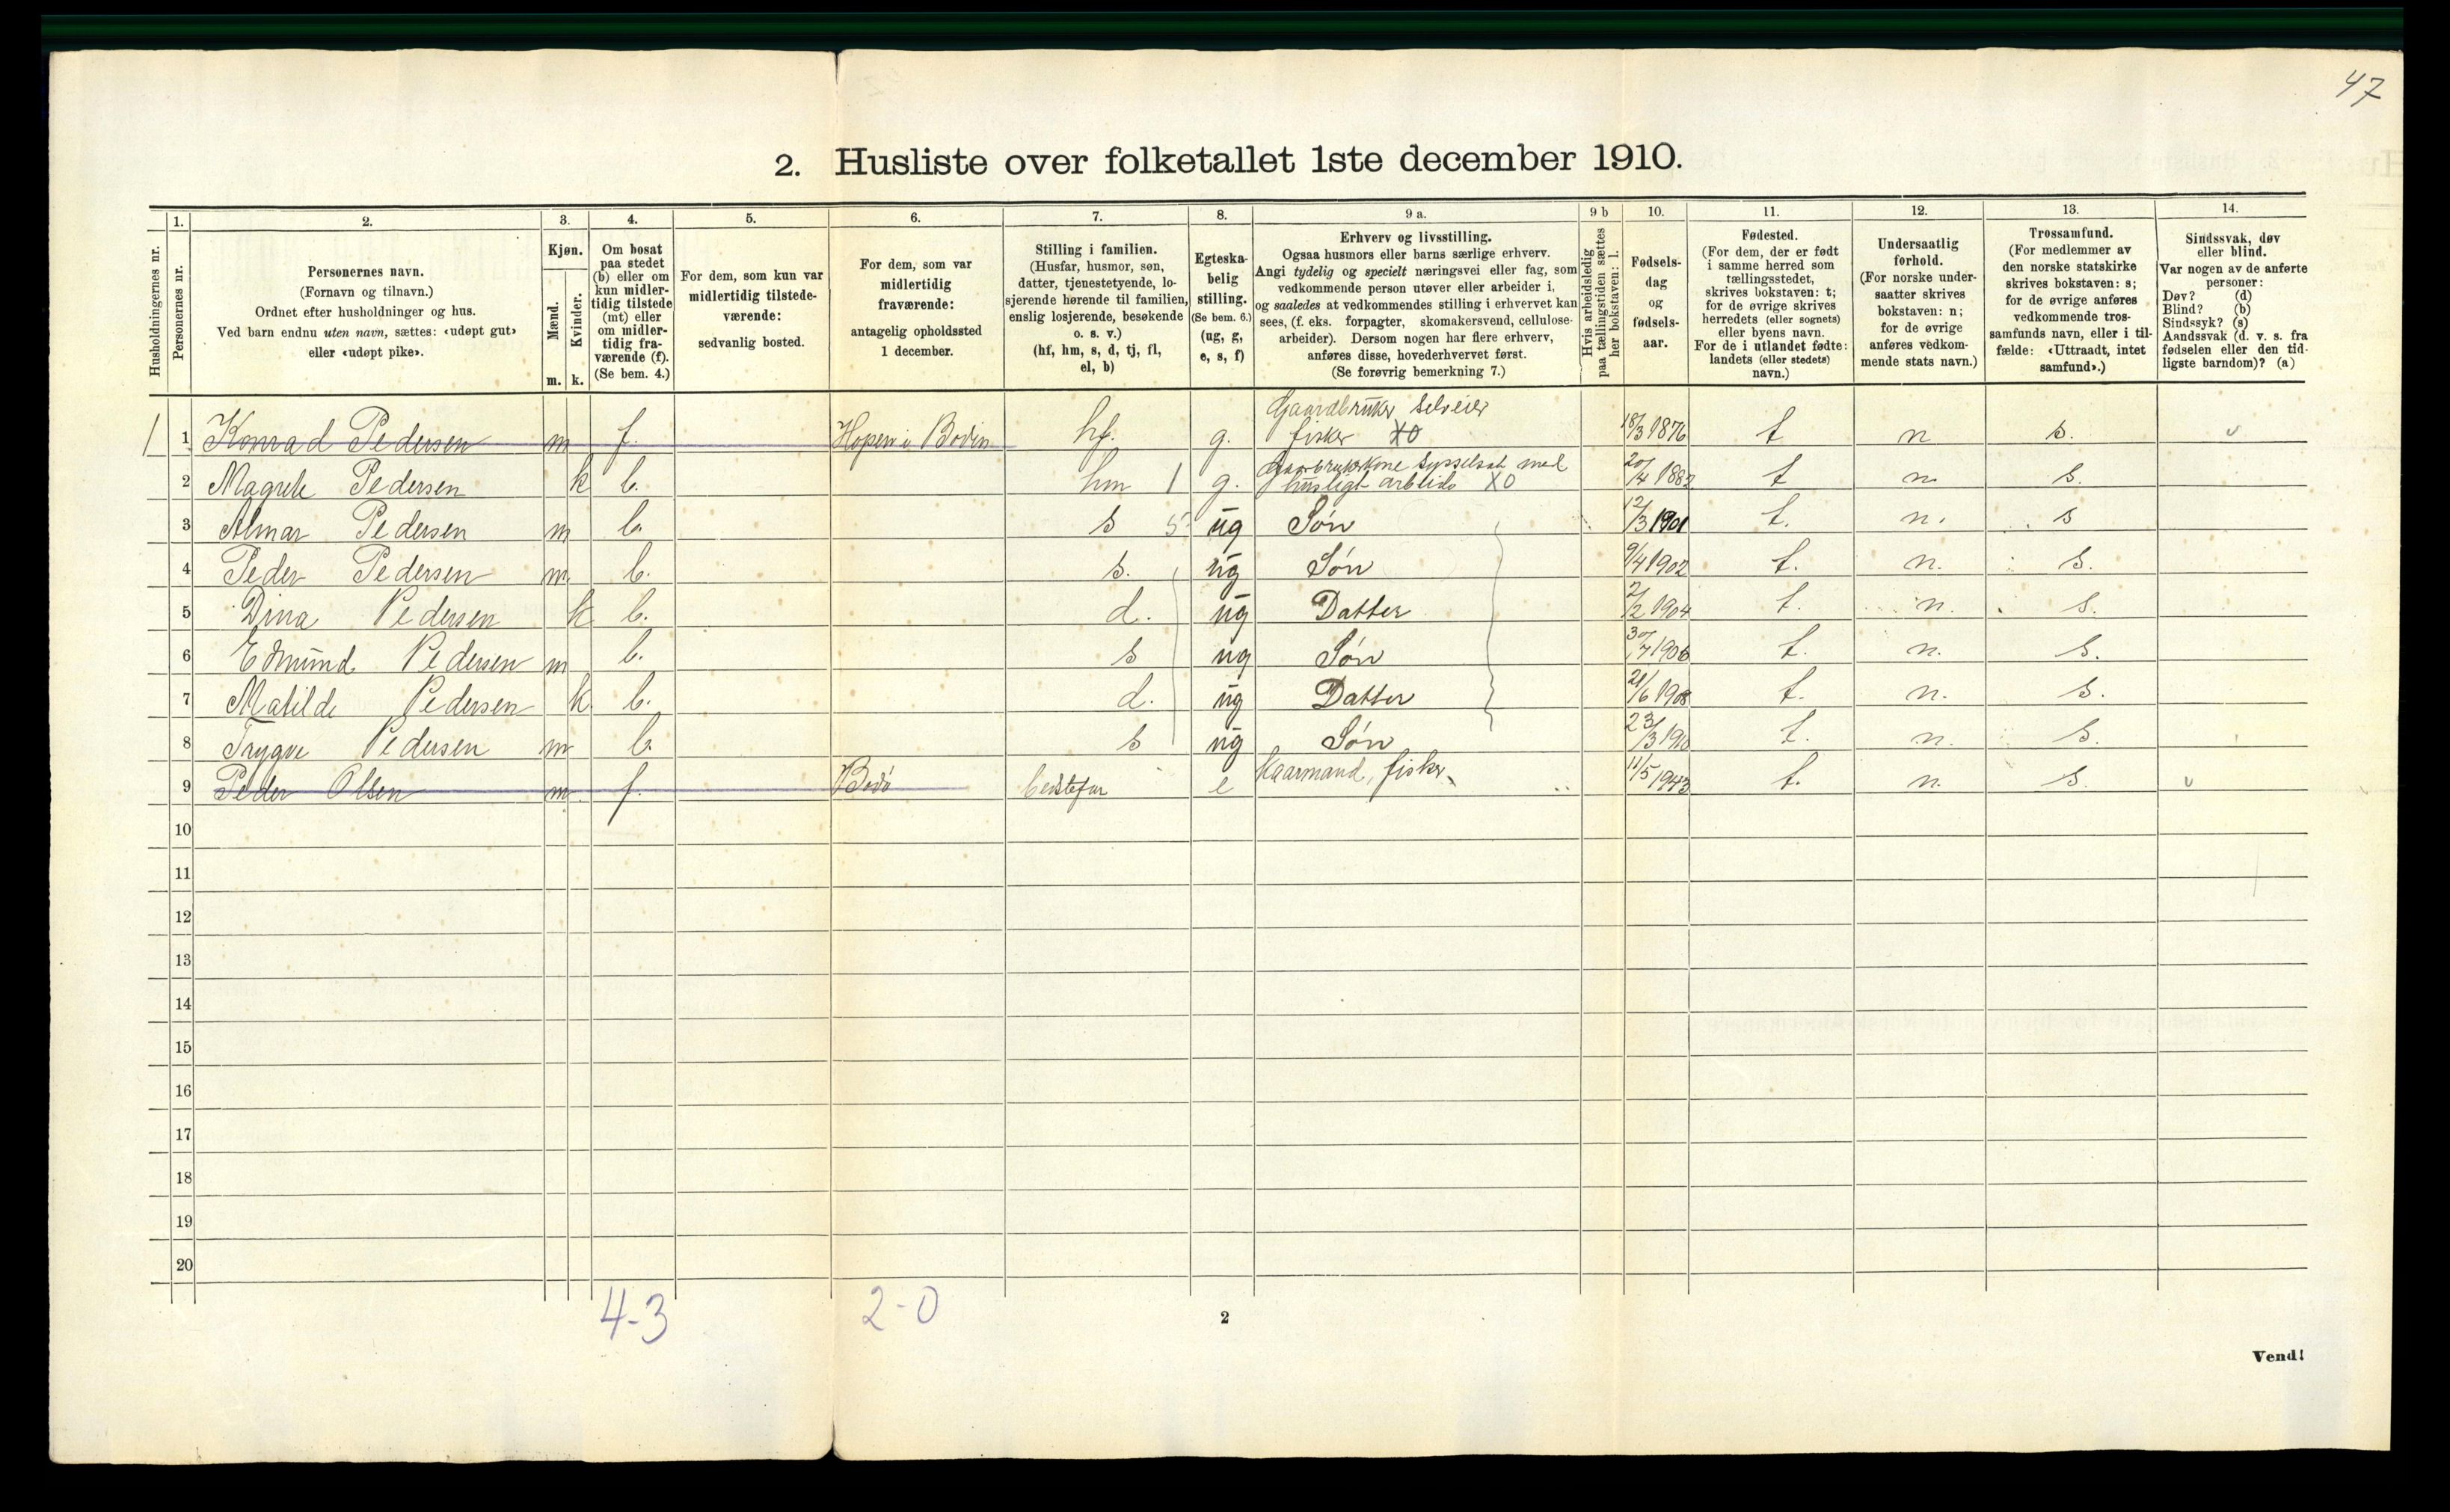 47
2. Husliste over folketallet 1ste december 1910.
1. 2. 3. 4. 5. 6. 7. 8. 9 a. 9 b 10. 11. 12. 13. 14.
Husholdningernes nr.
Personernes nr.
Personernes navn.
(Fornavn og tilnavn.)
Ordnet efter husholdninger og hus.
Ved barn endnu uten navn, sættes: «udøpt gut»
eller «udøpt pike».
Kjøn.
Mænd.
Kvinder.
m. k.
Om bosat
paa stedet
(b) eller om
kun midler-
tidig tilstede
(mt) eller
om midler-
tidig fra-
værende (f).
(Se bem. 4.)
For dem, som kun var
midlertidig tilstede-
værende:
sedvanlig bosted.
For dem, som var
midlertidig
fraværende:
antagelig opholdssted
1 december.
Stilling i familien.
(Husfar, husmor, søn,
datter, tjenestetyende, lo-
sjerende hørende til familien,
enslig losjerende, besøkende
o. s. v.)
(hf, hm, s, d, tj, fl,
el, b)
Egteska-
belig
stilling.
(Se bem. 6.)
(ug, g,
e, s, f)
Erhverv og livsstilling.
Ogsaa husmors eller barns særlige erhverv.
Angi tydelig og specielt næringsvei eller fag, som
vedkommende person utøver eller arbeider i,
og saaledes at vedkommendes stilling i erhvervet kan
sees, (f. eks. forpagter, skomakersvend, cellulose-
arbeider). Dersom nogen har flere erhverv,
anføres disse, hovederhvervet først.
(Se forøvrig bemerkning 7.)
Hvis arbeidsledig
paa tællingstiden sættes
her bokstaven: l.
Fødsels-
dag
og
fødsels-
aar.
Fødested.
(For dem, der er født
i samme herred som
tællingsstedet,
skrives bokstaven: t;
for de øvrige skrives
herredets (eller sognets)
eller byens navn.
For de i utlandet fødte:
landets (eller stedets)
navn.)
Undersaatlig
forhold.
(For norske under-
saatter skrives
bokstaven: n;
for de øvrige
anføres vedkom-
mende stats navn.)
Trossamfund.
(For medlemmer av
den norske statskirke
skrives bokstaven: s;
for de øvrige anføres
vedkommende tros-
samfunds navn, eller i til-
fælde: «Uttraadt, intet
samfund».)
Sindssvak, døv
eller blind.
Var nogen av de anførte
personer:
Døv? (d)
Blind? (b)
Sindssyk? (s)
Aandssvak (d. v. s. fra
fødselen eller den tid-
ligste barndom)? (a)
1 1 Konrad Pedersen m f. Hopen i Bodin hf. g. Gaardbruker selveier
fisker X0 18/3 1876 t n s.
2 Magrete Pedersen k b. hm 1 g. Gaarbrukerkone sysselsat med
husligt arbeide X0 20/4 1882 t n. s.
3 Almar Pedersen m b. s 5 ug Søn 12/3 1901 t. n. s
4 Peder Pedersen m b. s. ug Søn 9/4 1902 t. n. s.
5 Dina Pedersen k b. d. ug Datter 2/2 1904 t. n. s.
6 Edmund Pedersen m b. s ug Søn 30/7 1906 t. n. s.
7 Matilde Pedersen k b. d. ug Datter 21/6 1908 t. n. s.
8 Trygve Pedersen m b. s ug Søn 23/3 1910 t. n. s.
9 Peder Olsen m f. Bodø bedstefar e Kaarmand, fisker 11/5 1943 t. n. s.
10
11
12
13
14
15
16
17
18
19
20
4-3 2-0
2
Vend!